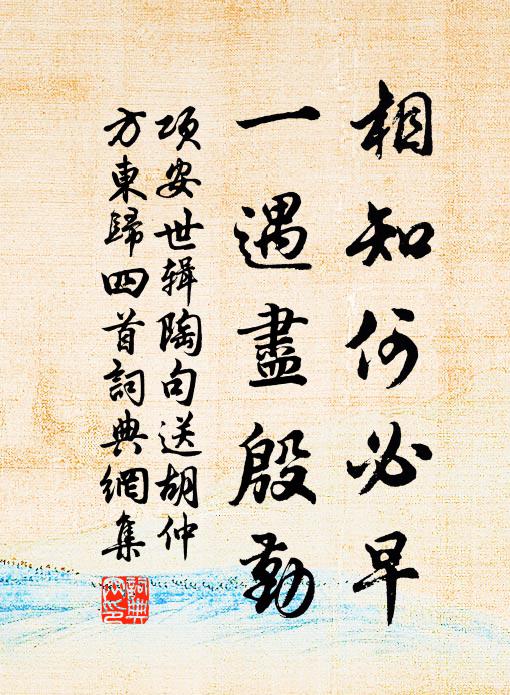 相知何必早
一遇盡殷勤
項安世輯陶句送胡仲
方東歸四首詞典網集